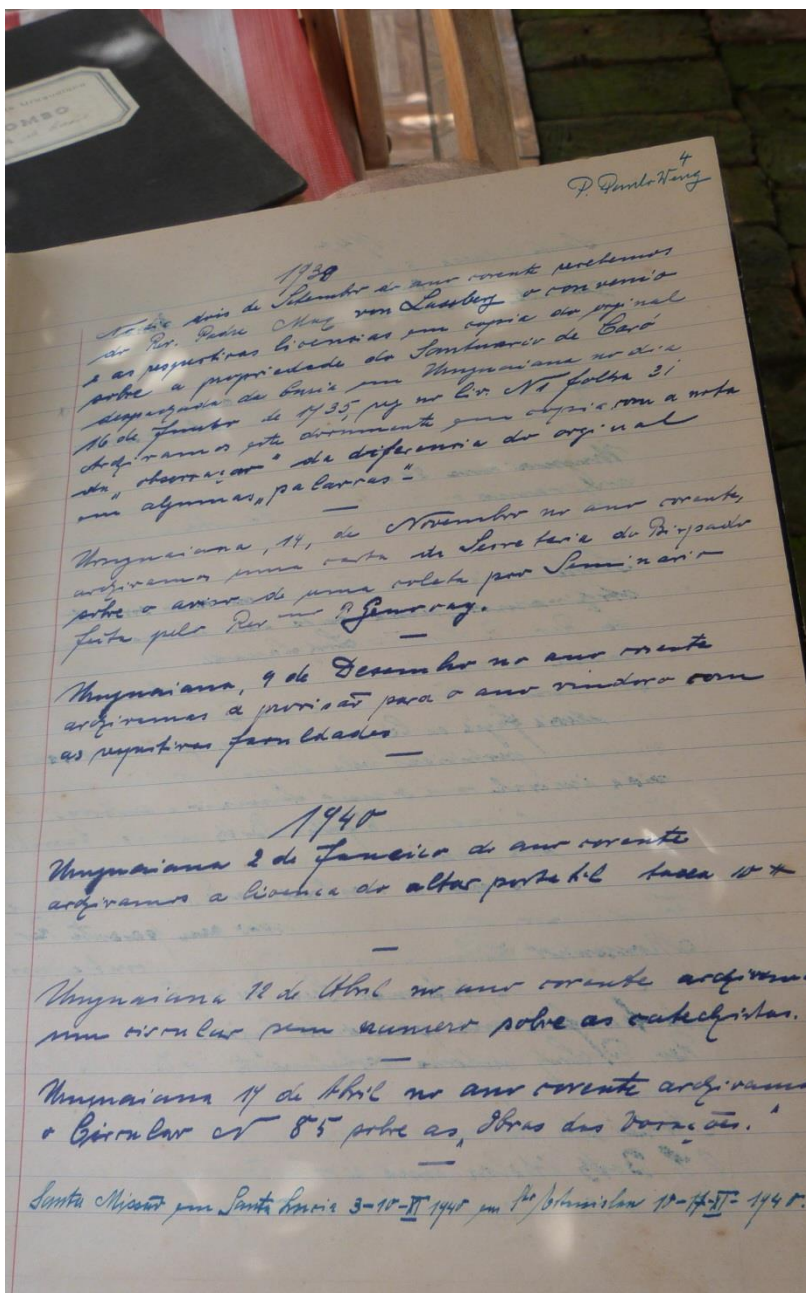 OMBO
4
P. Danilo Weng
1939
No dia dois de Setembro do ano corente recebemos
do Rev. Padre Max von Lassberg o convenio
e as respectivas licencias em copia do orginal
sobre a propriedade do Santuario de Caró
despachada da Curia em Uruguaiana no dia
16 de Junho de 1935, reg no liv. N1 folha 31
Archivamos este documento em copia com a nota
da "observaçao" da diferencia do orginal
em algumas "palavras"
Uruguaiana, 14, de Novembro no ano corente,
archivamos uma carta da Secretaria do Bispado
sôbre o aviso de uma coleta por Seminario
feita pelo Rev mo P.
Uruguaiana, 9 de Desembro no ano corente
archivamos a provisão para o ano vindoro com
as respectivas faculdades
1940
Uruguaiana 2 de Janeiro do ano corente
archivamos a licença do altar portatil taxa 10 #
Uruguaiana 12 de Abril no ano corente archivamo
um circular sem numero sobre as catechistas.
Uruguaiana 17 de Abril no ano corente archivamo
o Circular N 85 sobre as "Obras das Vocações."
Santa Missão em Santa Lucia 3-10-XI 1940 em Sto Estanislau 10-17-XI-1940.